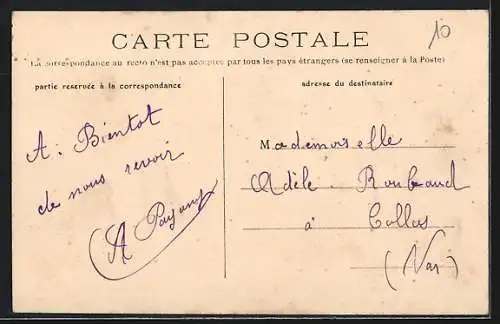 CARTE POSTALE
10
La correspondance au recto n'est pas acceptée par tous les pays étrangers (se renseigner à la Poste)
partie reservée à la correspondance
A. Bientot
de nous revoir
A Payan
adresse du destinataire
Mademoiselle
Adèle Roubaud
à Callas
(Var)